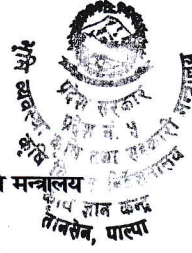 प्रदेश सरकार
प्रदेश नं ५
भूमि व्यवस्था कृषि तथा सहकारी मन्त्रालय
कृषि
मन्त्रालय
कृषि ज्ञान केन्द्र
तानसेन, पाल्पा